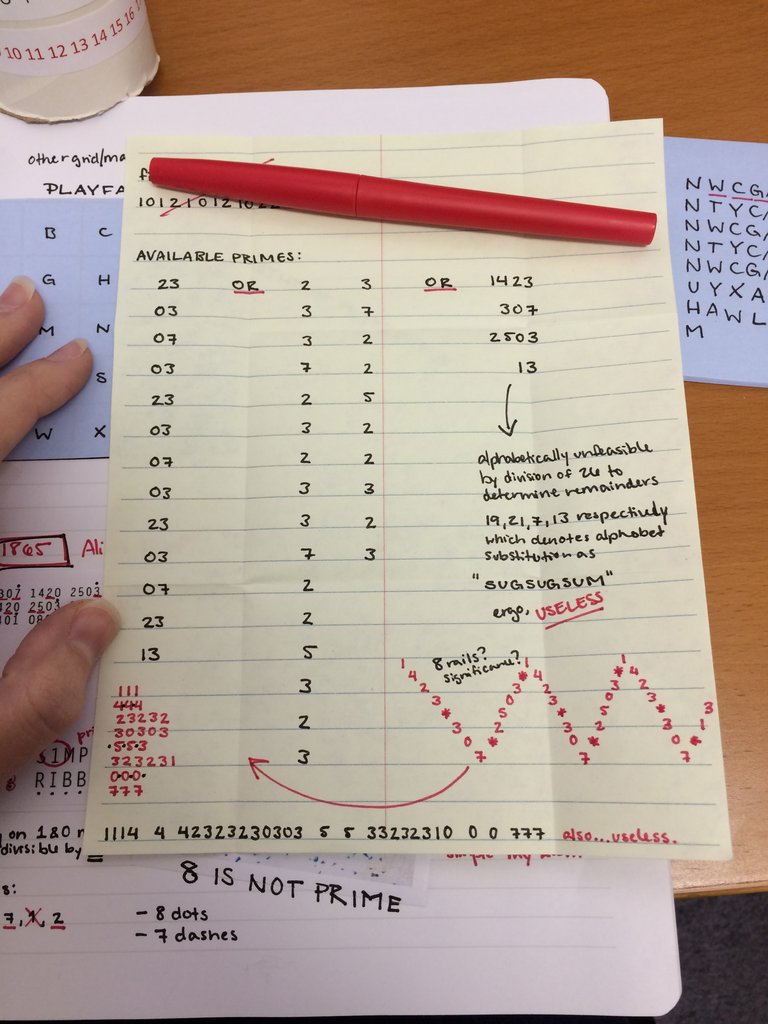 10 11 12 13 14 15 16
other grid/ma
PLAYFA
B C
G H
M N
S
W X
NWCG
NTYC
NWCG
NTYC
NWCG
UYXA
HAWL
M
1012101210
AVAILABLE PRIMES:
23 OR 2 3 OR 1423
03 3 7 307
07 3 2 2503
03 7 2 13
23 2 5
03 3 2
07 2 2
03 3 3
23 3 2
03 7 3
07 2
23 2
13 5
3
2
3
alphabetically unfeasible
by division of 26 to
determine remainders
19, 21, 7, 13 respectively
which denotes alphabet
substitution as
"SUGSUGSUM"
ergo, USELESS
8 rails?
significance?
1 1 1
4 * 4 * 4
2 3 2 3 2
3 0 3 0 3 3
* 5 * 5 * 1
3 2 3 2 3 *
0 * 0 * 0
7 7 7
111
444
23232
30303
·5·5·3
323231
000·
777
1114 4 42323230303 5 5 33232310 0 0 777 also...useless.
1865 Ali
307 1420 2503
420 2503
SIMP
RIBB
on 180
divisible by
8 IS NOT PRIME
s:
7, 1, 2
- 8 dots
- 7 dashes